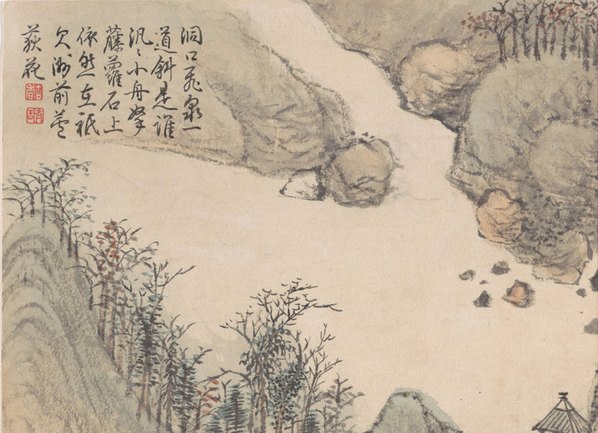 洞口飛泉一
道斜是誰
汎〻小舟拏
藤蘿石上
依然在祇
欠洲前蘆
荻花